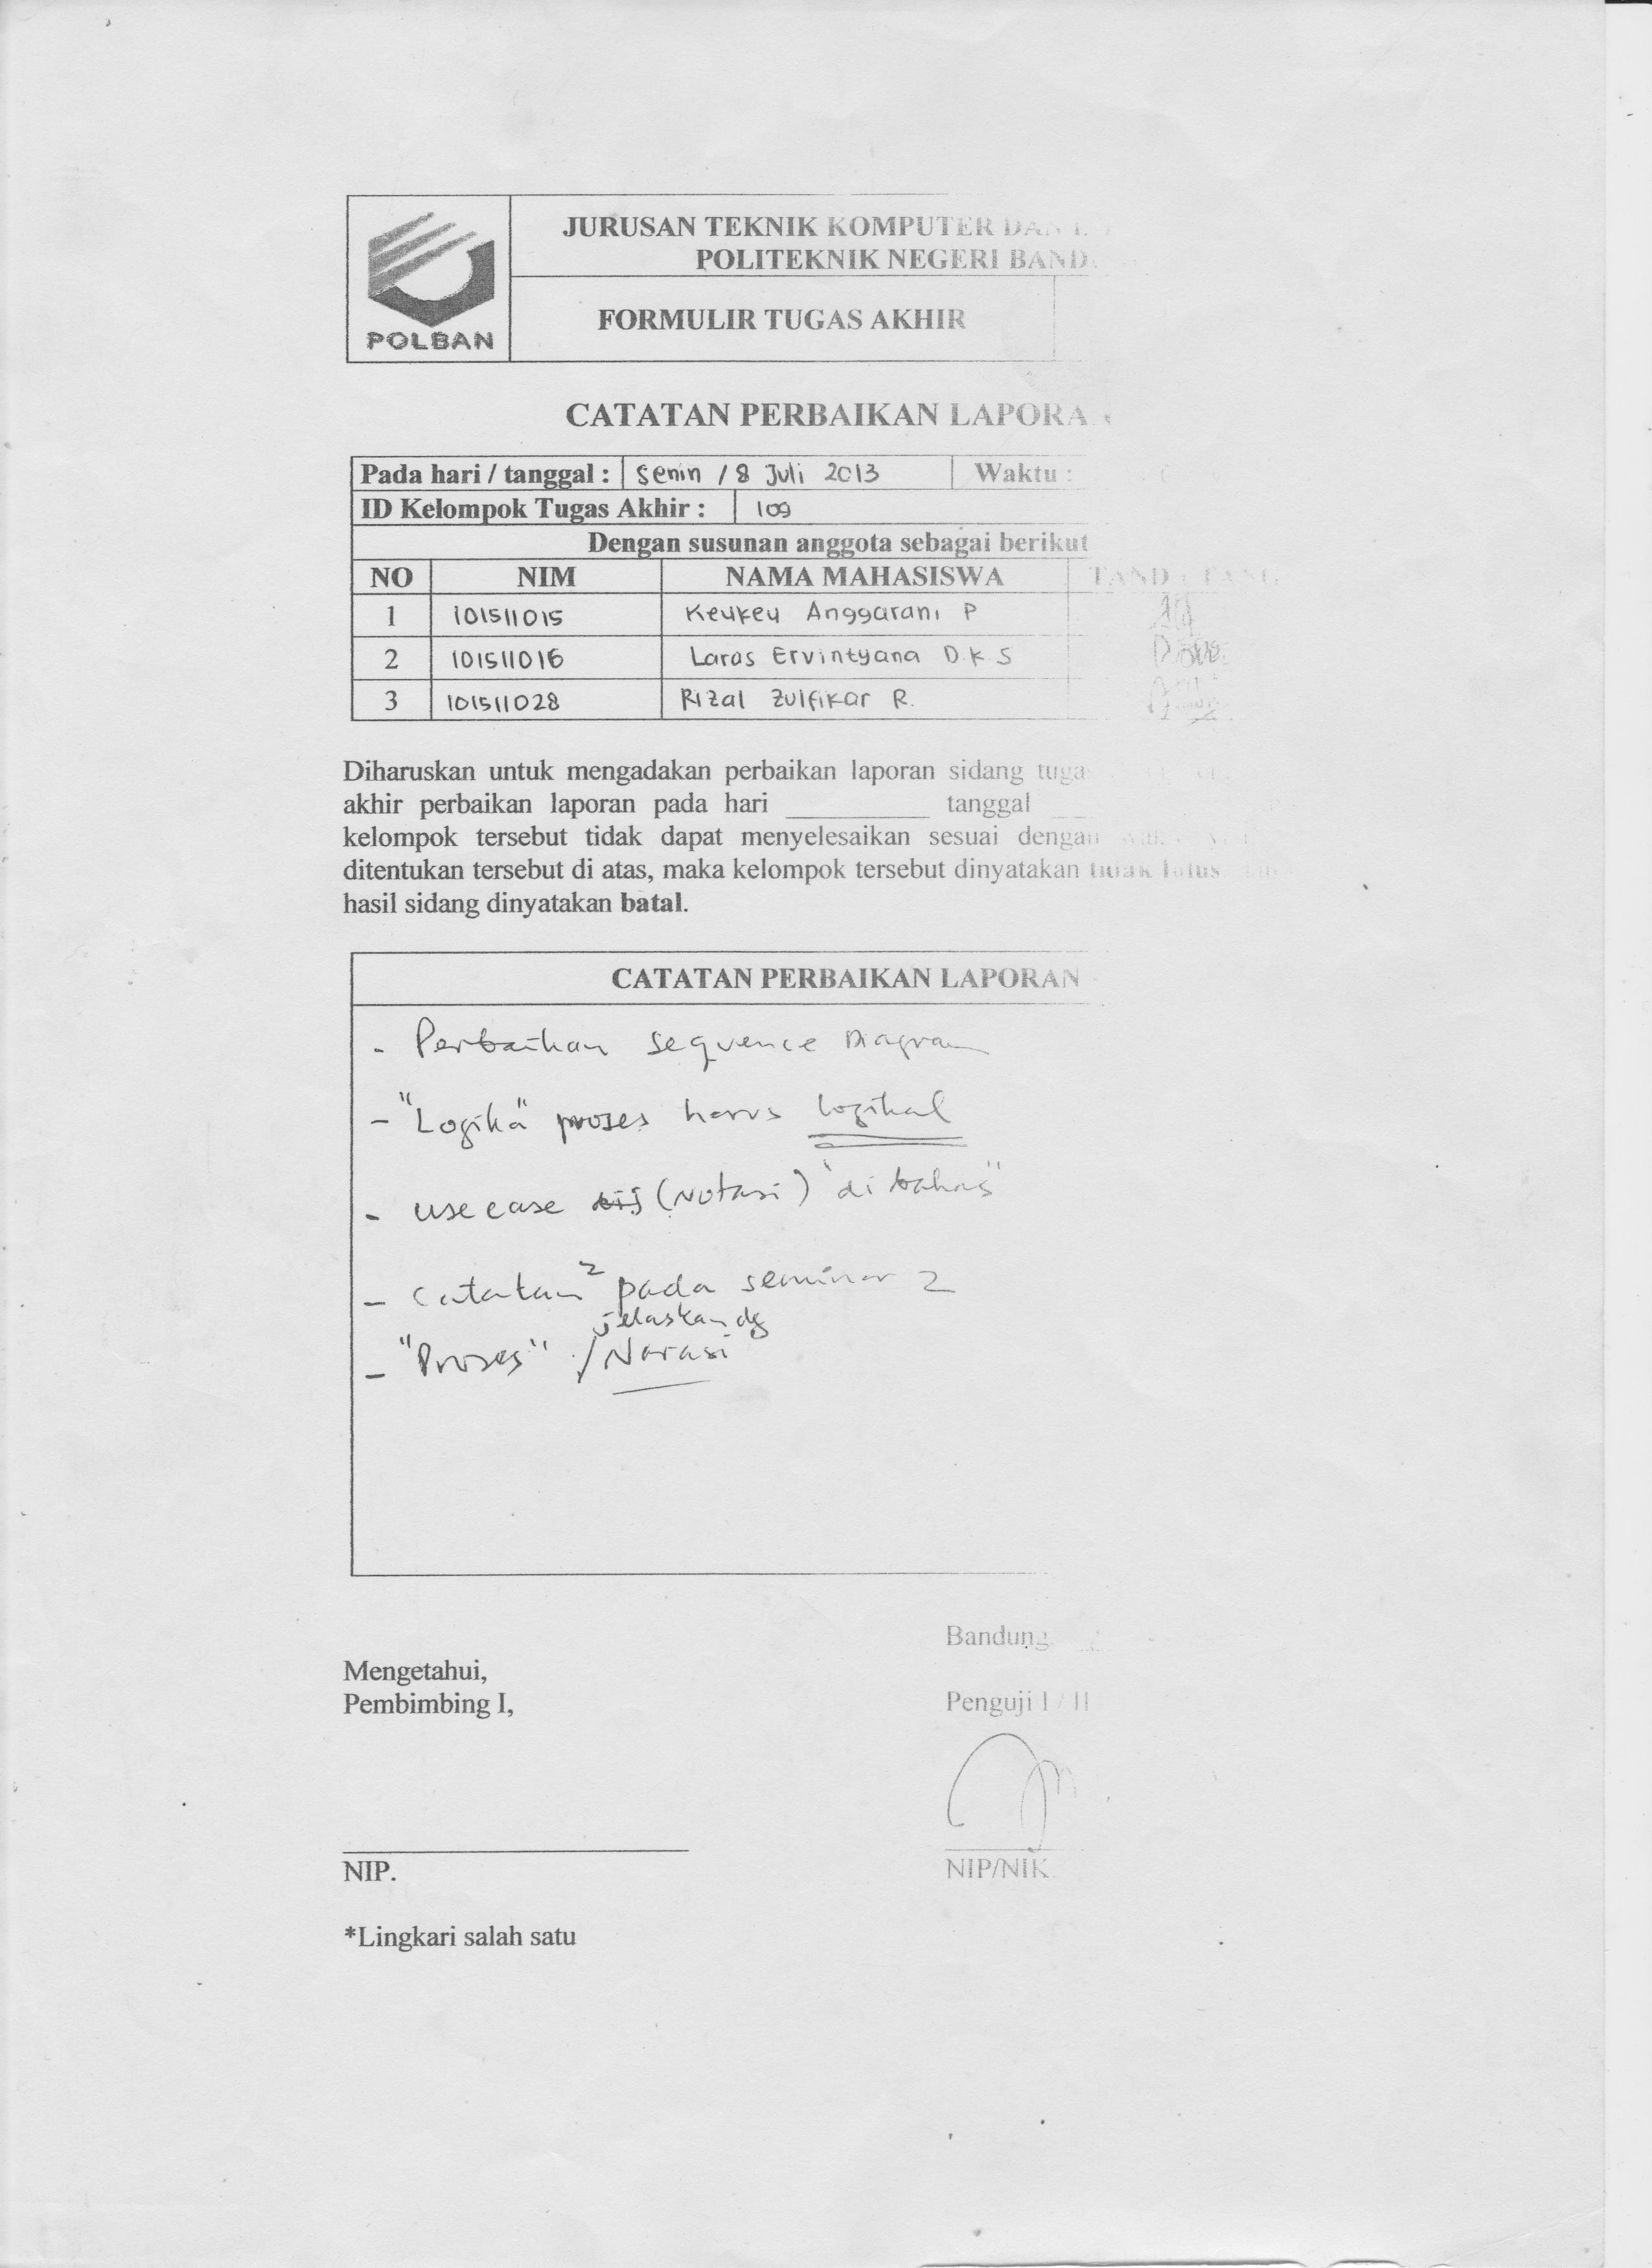 JURUSAN TEKNIK KOMPUTER DAN
POLITEKNIK NEGERI BAND
POLBAN
FORMULIR TUGAS AKHIR
CATATAN PERBAIKAN LAPORA
Pada hari / tanggal : Senin / 8 Juli 2013 Waktu :
ID Kelompok Tugas Akhir : 109
Dengan susunan anggota sebagai berikut
NO NIM NAMA MAHASISWA TANDA TANG
1 101511015 Keukeu Anggarani P
2 101511016 Laras Ervintyana D.K.S
3 101511028 Rizal Zulfikar R.
Diharuskan untuk mengadakan perbaikan laporan sidang tuga
akhir perbaikan laporan pada hari __________ tanggal
kelompok tersebut tidak dapat menyelesaikan sesuai dengan
ditentukan tersebut di atas, maka kelompok tersebut dinyatakan tidak lulus
hasil sidang dinyatakan batal.
CATATAN PERBAIKAN LAPORAN
- Perbaikan Sequence Diagram
- "Logika" proses harus logikal
- use case (Notasi) "di bahas"
- Catatan² pada seminar 2
jelaskan dg
- "Proses" / Narasi
Bandung
Mengetahui,
Pembimbing I,
Penguji I / II
NIP.
NIP/NIK.
*Lingkari salah satu